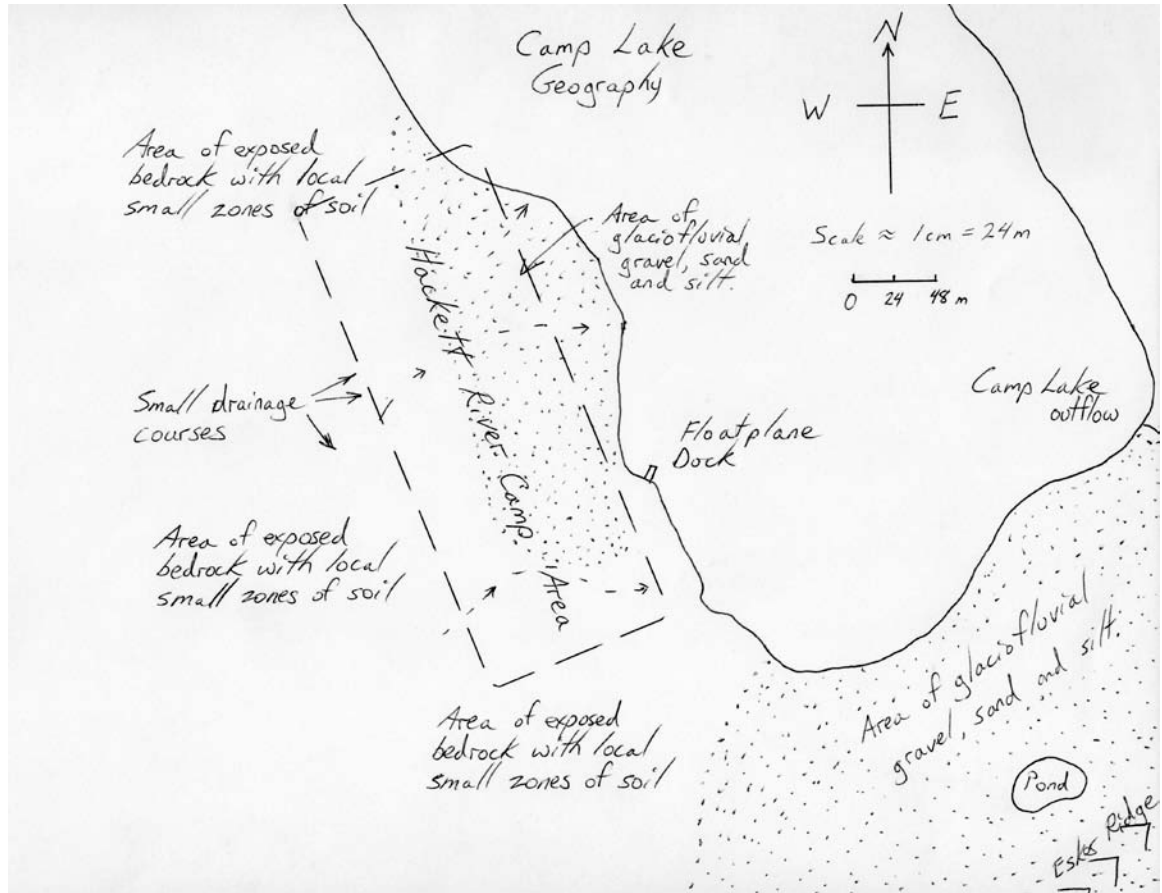 Camp Lake
Geography
N
W E
Area of exposed
bedrock with local
small zones of soil
Area of
glaciofluvial
gravel, sand
and silt.
Scale ≈ 1cm = 24m
0 24 48 m
Hackett River Camp Area
Small drainage
courses
Camp Lake
outflow
Floatplane
Dock
Area of exposed
bedrock with local
small zones of soil
Area of glaciofluvial
gravel, sand and silt.
Area of exposed
bedrock with local
small zones of soil
Pond
Esker Ridge